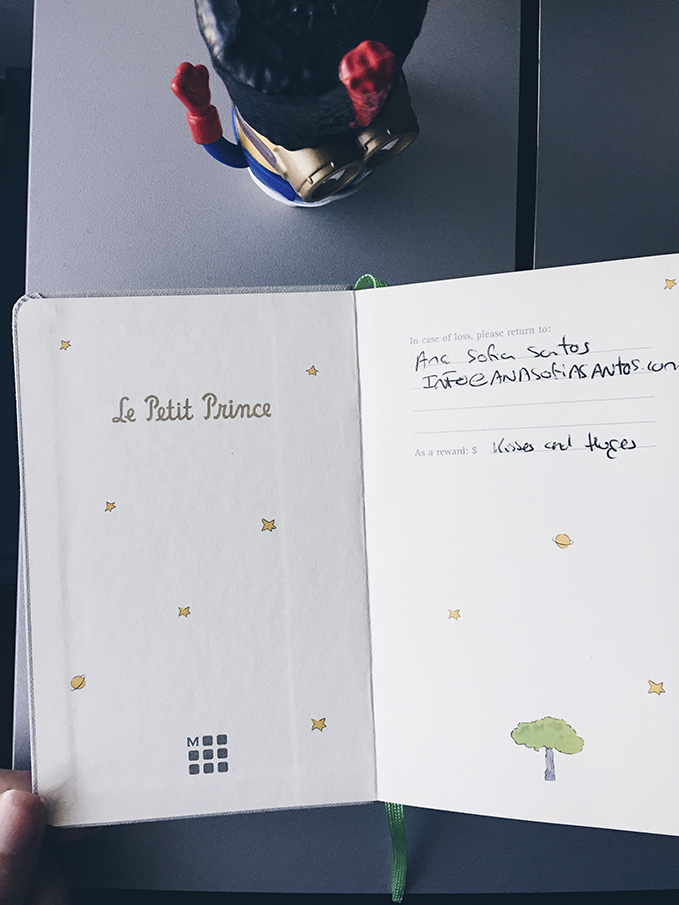 Le Petit Prince
M
In case of loss, please return to:
Ana Sofia Santos
INFO@ANASOFIASANTOS.com
As a reward: $ Kisses and Huges